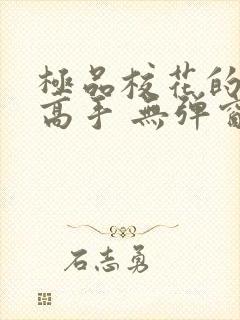 極品校花的
高手 無彈窗
石志勇